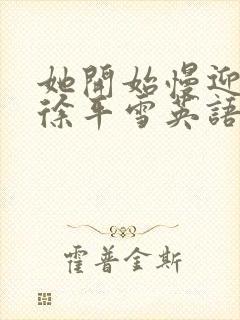 她開始慢迎
徐平雪英語
霍普金斯